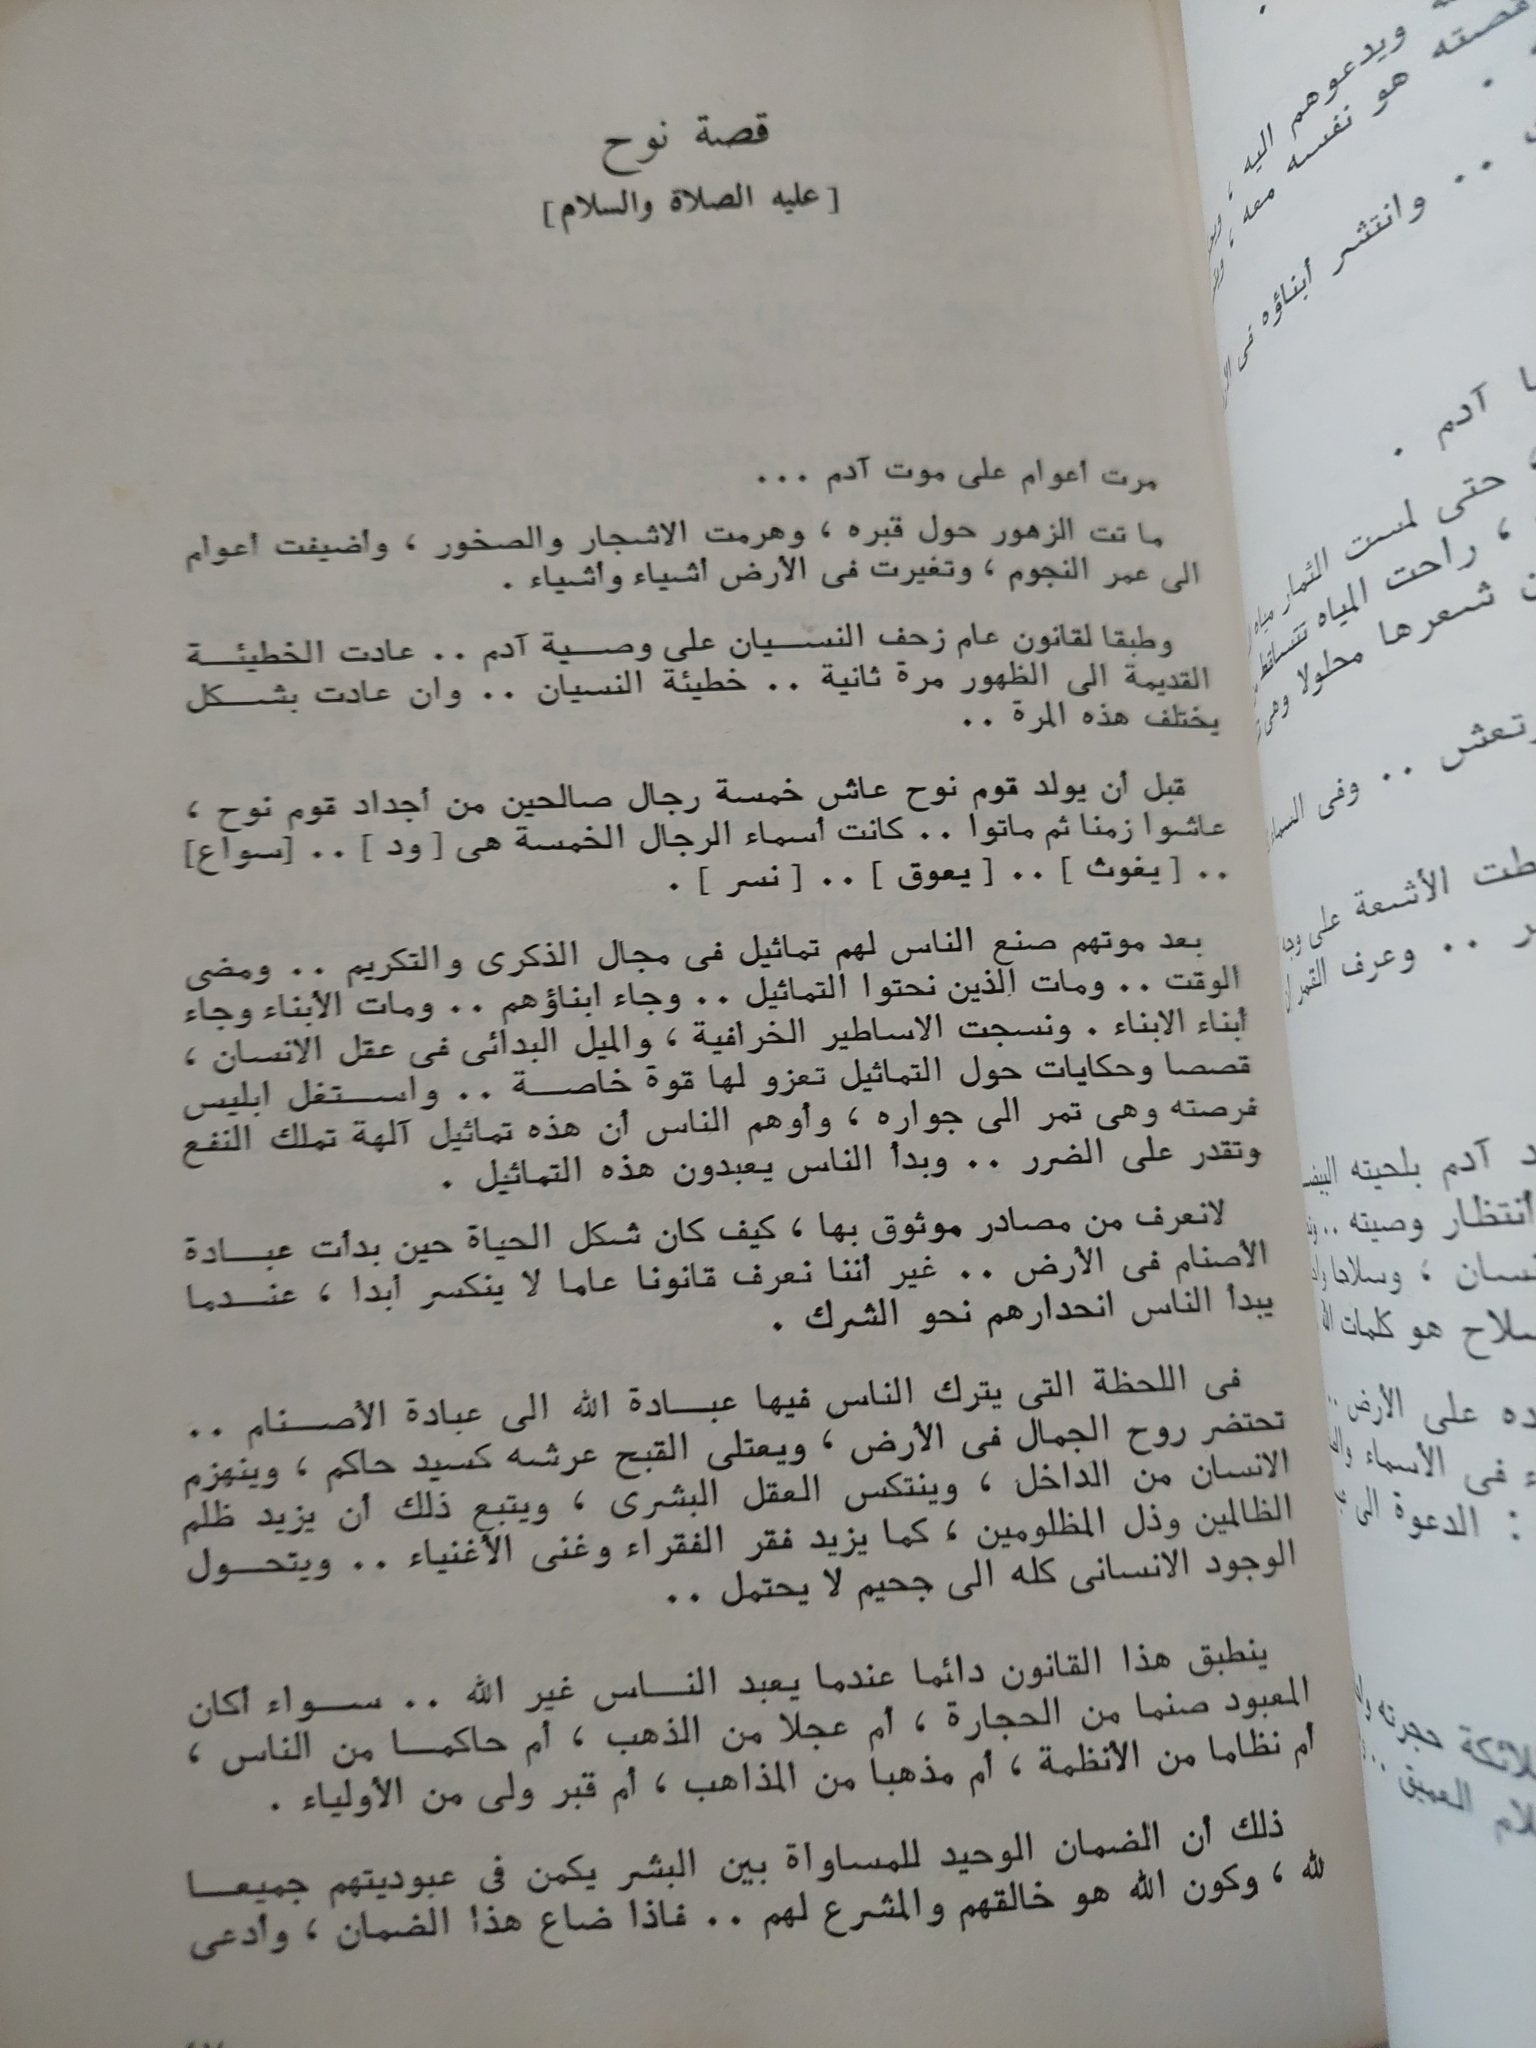 قصة نوح
[ عليه الصلاة والسلام ]
مرت أعوام على موت آدم ...
ماتت الزهور حول قبره ، وهرمت الاشجار والصخور ، وأضيفت أعوام
الى عمر النجوم ، وتغيرت فى الأرض أشياء وأشياء .
وطبقا لقانون عام زحف النسيان على وصية آدم .. عادت الخطيئة
القديمة الى الظهور مرة ثانية .. خطيئة النسيان .. وان عادت بشكل
يختلف هذه المرة ..
قبل أن يولد قوم نوح عاش خمسة رجال صالحين من أجداد قوم نوح ،
عاشوا زمنا ثم ماتوا .. كانت أسماء الرجال الخمسة هى [ ود ] .. [سواع]
.. [ يغوث ] .. [ يعوق ] .. [ نسر ] .
بعد موتهم صنع الناس لهم تماثيل فى مجال الذكرى والتكريم .. ومضى
الوقت .. ومات الذين نحتوا التماثيل .. وجاء ابناؤهم .. ومات الأبناء وجاء
أبناء الابناء . ونسجت الاساطير الخرافية ، والميل البدائى فى عقل الانسان ،
قصصا وحكايات حول التماثيل تعزو لها قوة خاصة .. واستغل ابليس
فرصته وهى تمر الى جواره ، وأوهم الناس أن هذه تماثيل آلهة تملك النفع
وتقدر على الضرر .. وبدأ الناس يعبدون هذه التماثيل .
لانعرف من مصادر موثوق بها ، كيف كان شكل الحياة حين بدأت عبادة
الأصنام فى الأرض .. غير أننا نعرف قانونا عاما لا ينكسر أبدا ، عندما
يبدأ الناس انحدارهم نحو الشرك .
فى اللحظة التى يترك الناس فيها عبادة الله الى عبادة الأصنام ..
تحتضر روح الجمال فى الأرض ، ويعتلى القبح عرشه كسيد حاكم ، وينهزم
الانسان من الداخل ، وينتكس العقل البشرى ، ويتبع ذلك أن يزيد ظلم
الظالمين وذل المظلومين ، كما يزيد فقر الفقراء وغنى الأغنياء .. ويتحول
الوجود الانسانى كله الى جحيم لا يحتمل ..
ينطبق هذا القانون دائما عندما يعبد الناس غير الله .. سواء أكان
المعبود صنما من الحجارة ، أم عجلا من الذهب ، أم حاكما من الناس ،
أم نظاما من الأنظمة ، أم مذهبا من المذاهب ، أم قبر ولى من الأولياء .
ذلك أن الضمان الوحيد للمساواة بين البشر يكمن فى عبوديتهم جميعا
لله ، وكون الله هو خالقهم والمشرع لهم .. فاذا ضاع هذا الضمان ، وأدعى
ويدعوهم اليه ،
قصته هو نفسه معه ،
.. وانتشر أبناؤه فى
آدم .
حتى لمست الثمار مياه
، راحت المياه تتساقط
شعرها محلولا وهى
.. وفى السماء
الأشعة على
.. وعرف القمر
آدم بلحيته
أنتظار وصيته ..
، وسلاحا
هو كلمات
على الأرض ..
فى الأسماء
: الدعوة الى